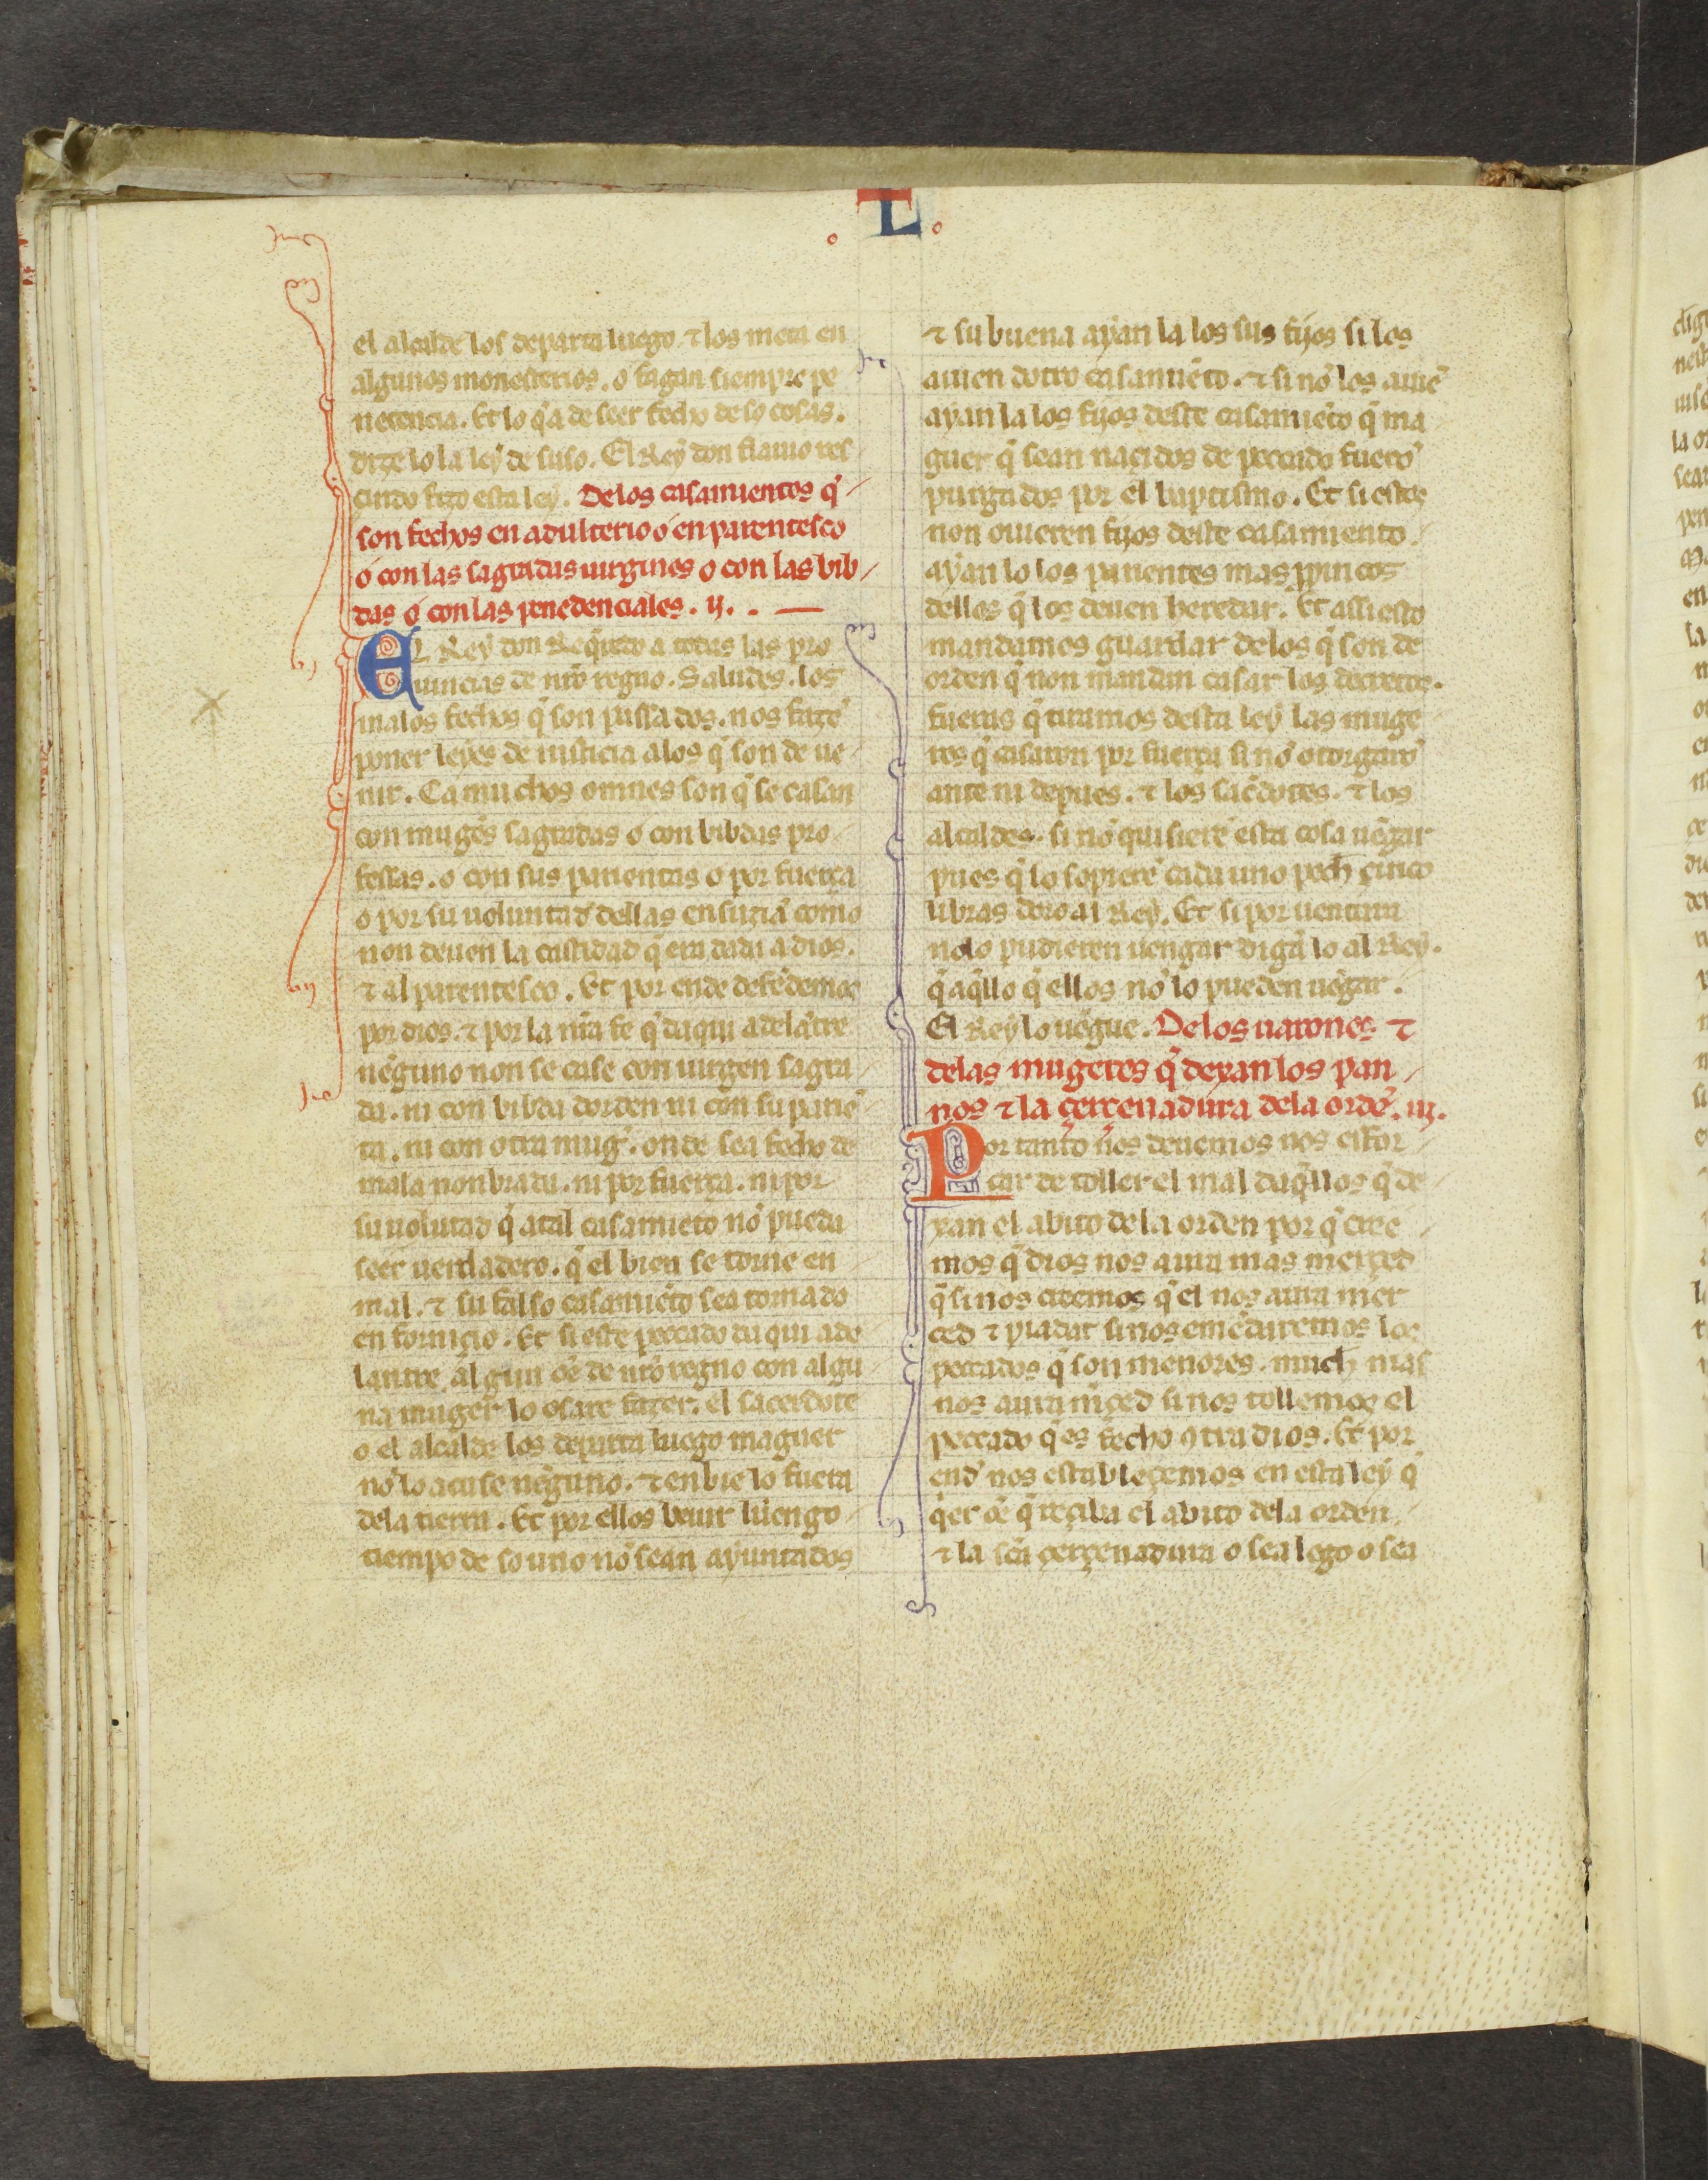 L
el alcalde los departa luego ⁊ los meta en
algunos monesterios. o fagan siempre pe
netencia. Et lo q̃ a de seer fecho de so cosas.
dize lo la ley de suso. El Rey don flauio res
cindo fizo esta ley. De los casamientos q̃
son fechos en adulterio o en parentesco
o con las sagradas uirgines o con las bib
das o con las penedenciales. ij.
El Rey don Reçindo a todas las pro
uincias de nr̃o regno. Saludes. los
malos fechos q̃ son passados. nos fazẽ
poner leyes de iusticia a los q̃ son de ue
nir. Ca muchos omnes son q̃ se casan
con muge͛s sagradas o con bibdas pro
fessas. o con sus parientas o por fuerça
o por su uoluntad dellas ensuziã como
non deuen la castidad q̃ era dada a dios.
⁊ al parentesco. Et por ende defẽdemos
por dios. ⁊ por la nr̃a fe q̃ daqui adelãtre
nẽguno non se case con uirgen sagra
da. ni con bibda dorden ni con su pariẽ
ta. ni con otra mug̃. onde sea fecho de
mala nonbrada. ni por fuerça. ni por
su volũtad q̃ atal casamiẽto nõ pueda
seer uerdadero. q̃ el bien se torne en
mal. ⁊ su falso casamiẽto sea tornado
en forniçio. Et si este peccado daqui ade
lantre algun õe de nr̃o regno con algu
na muger lo osare fazer. el sacerdote
o el alcalde los departa luego maguer
nõ lo acuse nẽguno. ⁊ enbie lo fuera
de la tierra. Et por ellos beuir luengo
tiempo de so uno nõ sean ayuntados
⁊ su buena ayan la los sus fijos si los
auien dotro casamiẽto. ⁊ si nõ los auiẽ
ayan la los fijos deste casamiẽto q̃ ma
guer q̃ sean nacidos de peccado fuerõ
purgados por el baptismo. Et si estos
non ouieren fijos deste casamiento.
ayan lo los parientes mas p̱pincos
dellos q̃ los deuen heredar. Et assi esto
mandamos guardar de los q̃ son de
orden q̃ non mandan casar los decretos.
fueras q̃ tiramos desta ley las muge
res q̃ casaron por fuerça si nõ otorgarõ
ante ni depues. ⁊ los sac̃dotes. ⁊ los
alcaldes. si nõ quisierẽ esta cosa uẽgar
pues q̃ lo sopierẽ cada uno pech̃ çinco
libras doro al Rey. Et si por uentura
no lo pudieren uengar digã lo al Rey.
q̃ aq̃llo q̃ ellos nõ lo pueden uẽgar.
El Rey lo uẽgue. De los uarones ⁊
de las mugeres q̃ dexan los pan
nos ⁊ la çerçenadura de la ordẽ. iij.
Por tanto nos deuemos nos esfor
çar de toller el mal daq̃llos q̃ de
xan el abito de la orden por q̃ cree
mos q̃ dios nos aura mas merçed
q̃ si nos creemos q̃ el nos aura mer
ced ⁊ piadat si nos emẽdaremos los
peccados q̃ son menores. much̃ mas
nos aura m̃çed si nos tollemos el
peccado q̃ es fecho ꝯtra dios. Et por
end̃ nos establecemos en esta ley q̃
q̃er õe q̃ reçiba el abito de la orden
⁊ la sc̃a çerçenadura o sea lego o sea